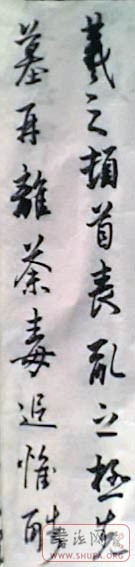 羲之頓首喪亂之極先
墓再離荼毒追惟酷
書法网
WWW.SHUFA.ORG